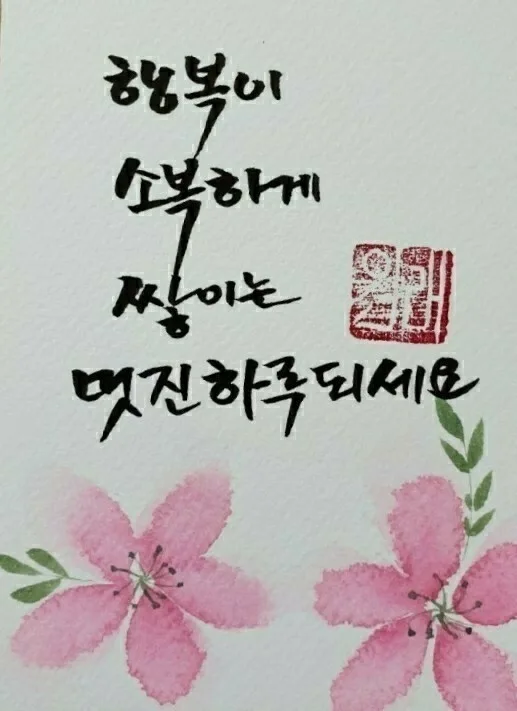 행복이
소복하게
쌓이는
멋진하루되세요